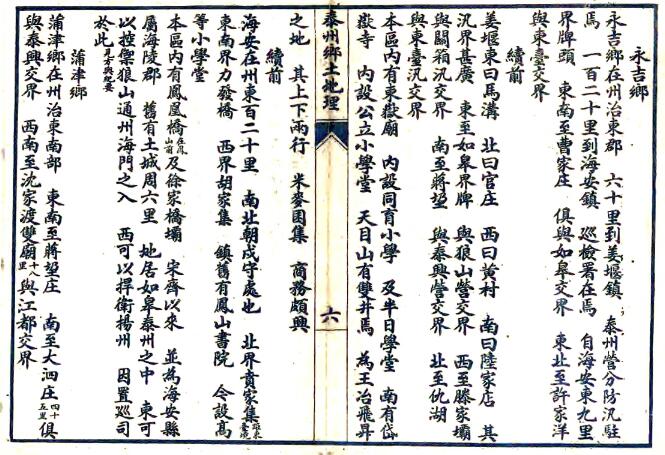 永吉鄉
永吉鄉在州治東郡　六十里到姜堰鎮　泰州營分防汛駐
馬　一百二十里到海安鎮　巡檢署在馬　自海安東九里
界牌頭　東南至曹家庄　俱與如皋交界　東北至許家洋
與東臺交界
續前
姜堰東曰馬溝　北曰官庄　西曰黃村　南曰陸家店　其
汛界甚廣　東至如皋界牌　與狼山營交界　西至滕家壩
與關箱汛交界　南至蔣垈　與泰興營交界　北至仇湖
與東臺汛交界
本區内有東嶽廟　内設同育小學　及半日學堂　南有岱
嶽寺　内設公立小學堂　天目山有雙井馬　為王治飛昇
泰州鄉土地理
六
之地　其上下兩行　米麥囤集　商務頗興
續前
海安在州東百二十里　南北朝戍守處也　北界賁家集
東南界力發橋　西界胡家集　鎮舊有鳳山書院　今設高
等小學堂
本區内有鳳凰橋在鳳山前及徐家橋壩　宋齊以來　並為海安縣
屬海陵郡　舊有土城周六里　地居如皋泰州之中　東可
以控禦狼山通州海門之入　西可以捍衛揚州　因置巡司
於此見方輿紀要
蒲津鄉
蒲津鄉在州治東南部　東南至蔣垈庄　南至大泗庄四十五里俱
與泰興交界　西南至沈家渡雙廟十八里與江都交界